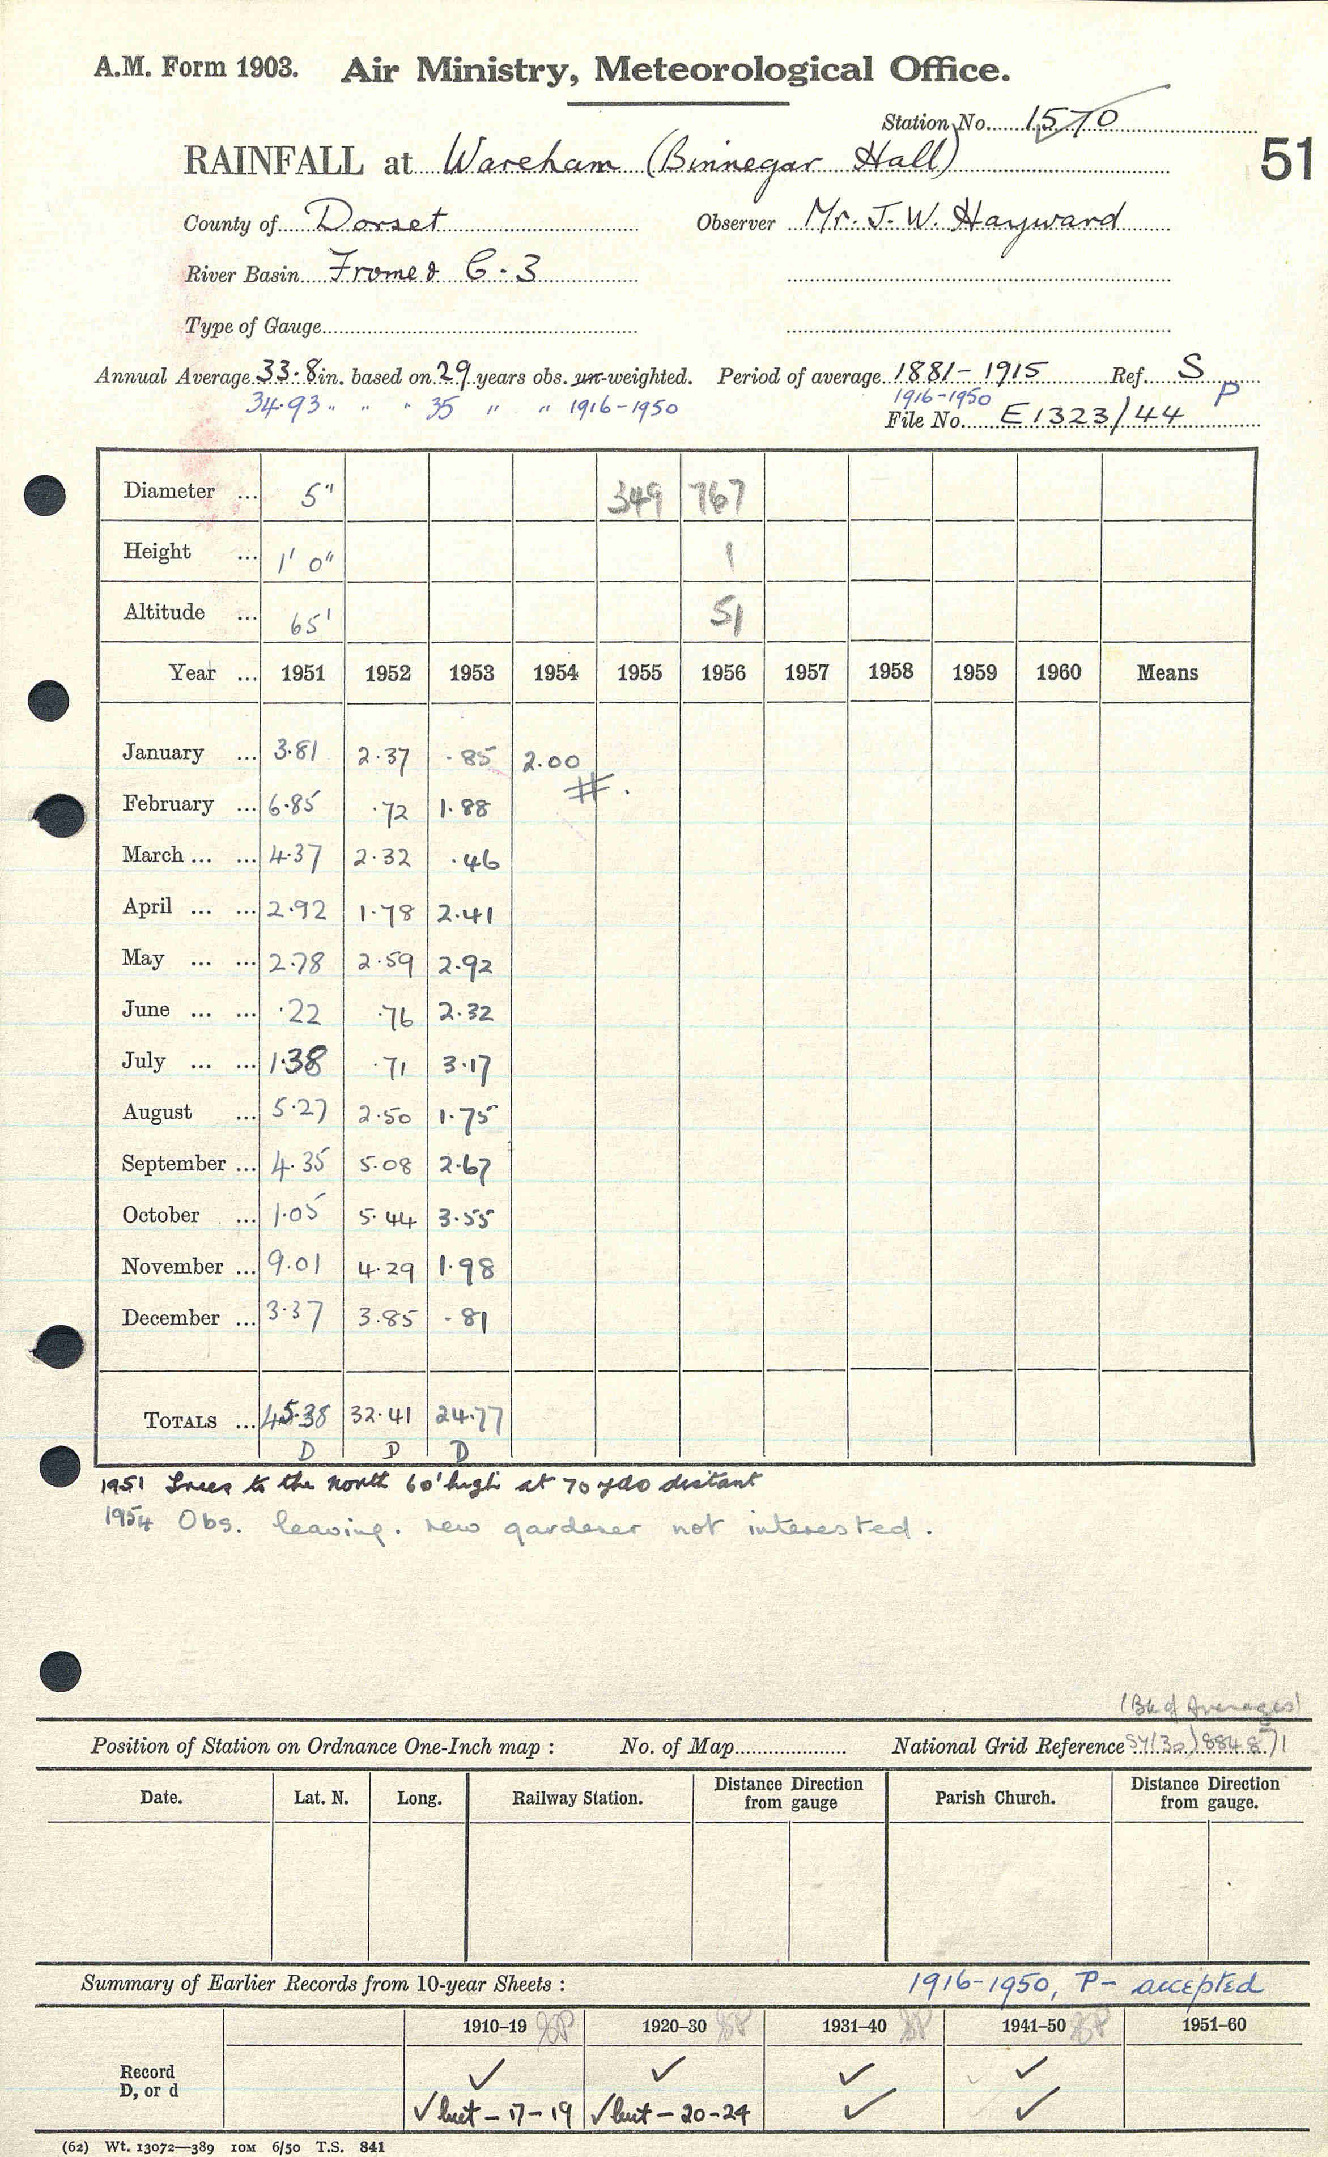 A.M. Form 1903. Air Ministry, Meteorological Office.
Station No. 1570
RAINFALL at Wareham (Binnegar Hall)
51
County of Dorset Observer Mr. J. W. Hayward
River Basin Frome & C.3
Type of Gauge
Annual Average 33.8 in. based on 29 years obs. un-weighted. Period of average 1881-1915 Ref. S
34.93 " " " 35 " " 1916-1950 1916-1950 P
File No. E1323/44
Diameter ... 5" 349 767
Height ... 1' 0" 1
Altitude ... 65' 51
Year ... 1951 1952 1953 1954 1955 1956 1957 1958 1959 1960 Means
January ... 3.81 2.37 .85 2.00
#.
February ... 6.85 .72 1.88
March ... ... 4.37 2.32 .46
April ... ... 2.92 1.78 2.41
May ... ... 2.78 2.59 2.92
June ... ... .22 .76 2.32
July ... ... 1.38 .71 3.17
August ... 5.27 2.50 1.75
September ... 4.35 5.08 2.67
October ... 1.05 5.44 3.55
November ... 9.01 4.29 1.98
December ... 3.37 3.85 .81
TOTALS ... 45.38 32.41 24.77
D D D
1951 Trees to the north 60' high at 70 yds distant
1954 Obs. leaving. new gardener not interested.
(Bk of Averages)
Position of Station on Ordnance One-Inch map : No. of Map National Grid Reference SY(30)884871
Date. Lat. N. Long. Railway Station. Distance Direction from gauge Parish Church. Distance Direction from gauge.
Summary of Earlier Records from 10-year Sheets : 1916-1950, P- accepted
1910-19 1920-30 1931-40 1941-50 1951-60
Record ✓ ✓ ✓ ✓
D, or d ✓ but - 17-19 ✓ but - 20-24 ✓ ✓
(62) Wt. 13072—389 10M 6/50 T.S. 841